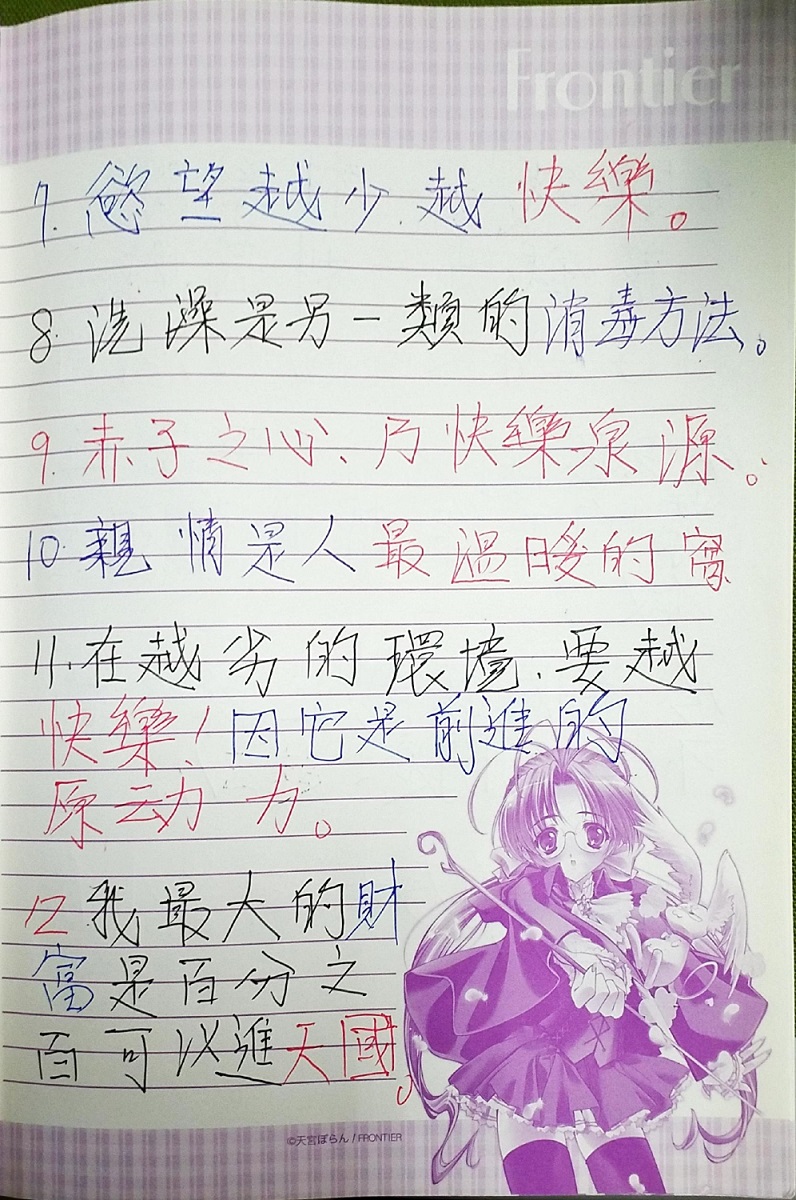 Frontier
7. 慾望越少越快樂。
8. 洗澡是另一類的消毒方法。
9. 赤子之心、乃快樂泉源。
10. 親情是人最温暖的窩
11. 在越劣的環境.要越
快樂!因它是前進的
原动力。
12 我最大的財
富是百分之
百可以進天國。
©天宮ぽらん / FRONTIER